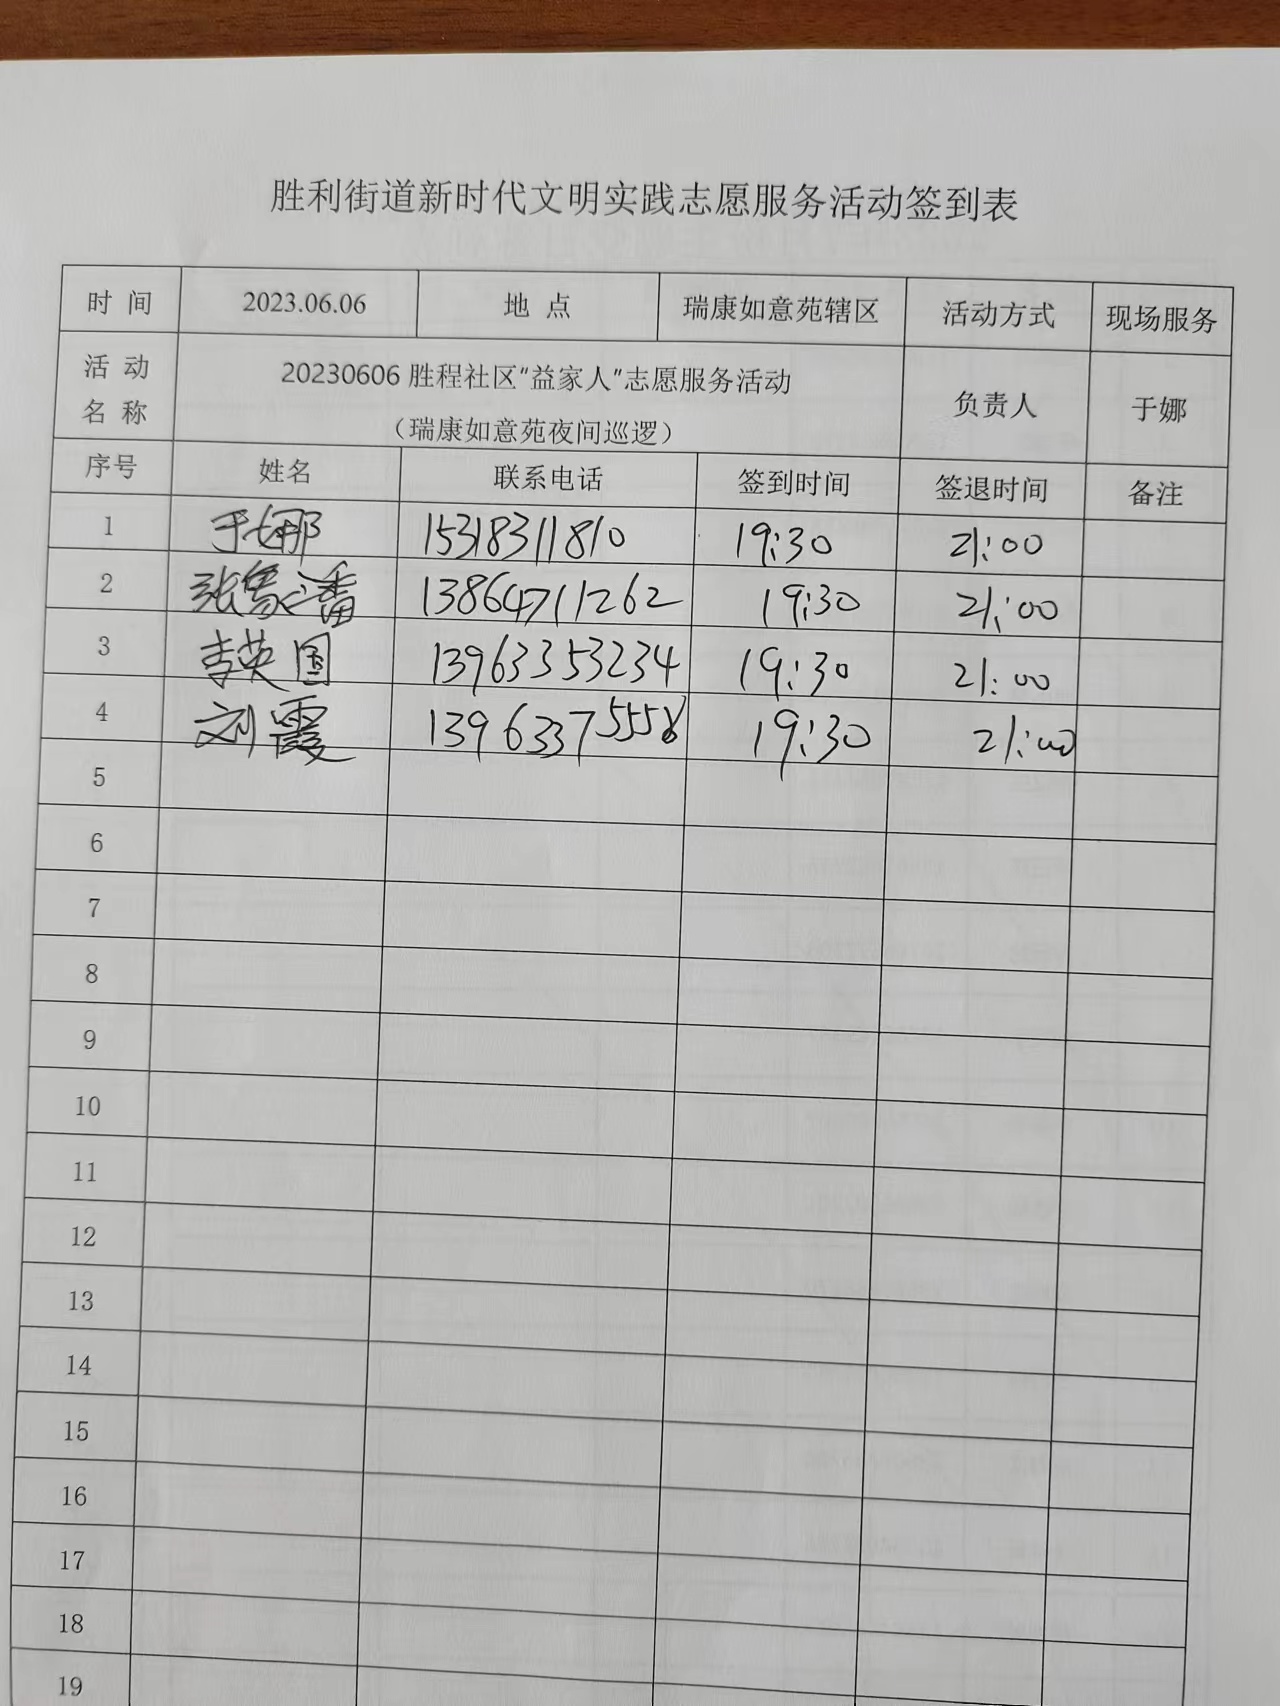 胜利街道新时代文明实践志愿服务活动签到表
时 间 2023.06.06 地 点 瑞康如意苑辖区 活动方式 现场服务
活 动 名 称 20230606 胜程社区“益家人”志愿服务活动 负责人 于娜
（瑞康如意苑夜间巡逻）
序号 姓名 联系电话 签到时间 签退时间 备注
1 于娜 15318311810 19:30 21:00
2 张 13864711262 19:30 21:00
3 李英国 13963353234 19:30 21:00
4 刘霞 13963375558 19:30 21:00
5
6
7
8
9
10
11
12
13
14
15
16
17
18
19